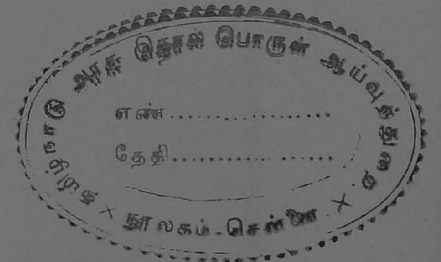 தமிழ்நாடு அரசு தொல் பொருள் ஆய்வுத்துறை
எண்..................
தேதி..................
× நூலகம்-சென்னை ×